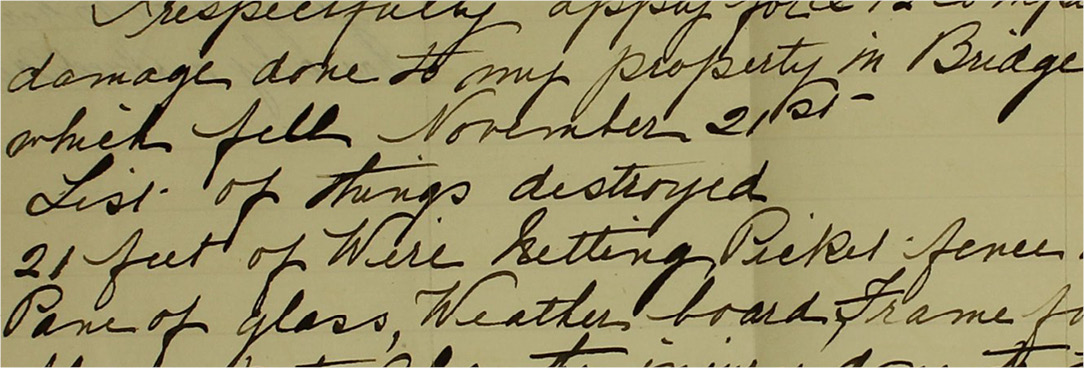 respectfully apply for
damage done to my property in Bridge
which fell November 21st
List of things destroyed
21 feet of Wire Netting, Picket fence.
Pane of glass, Weather board, Frame